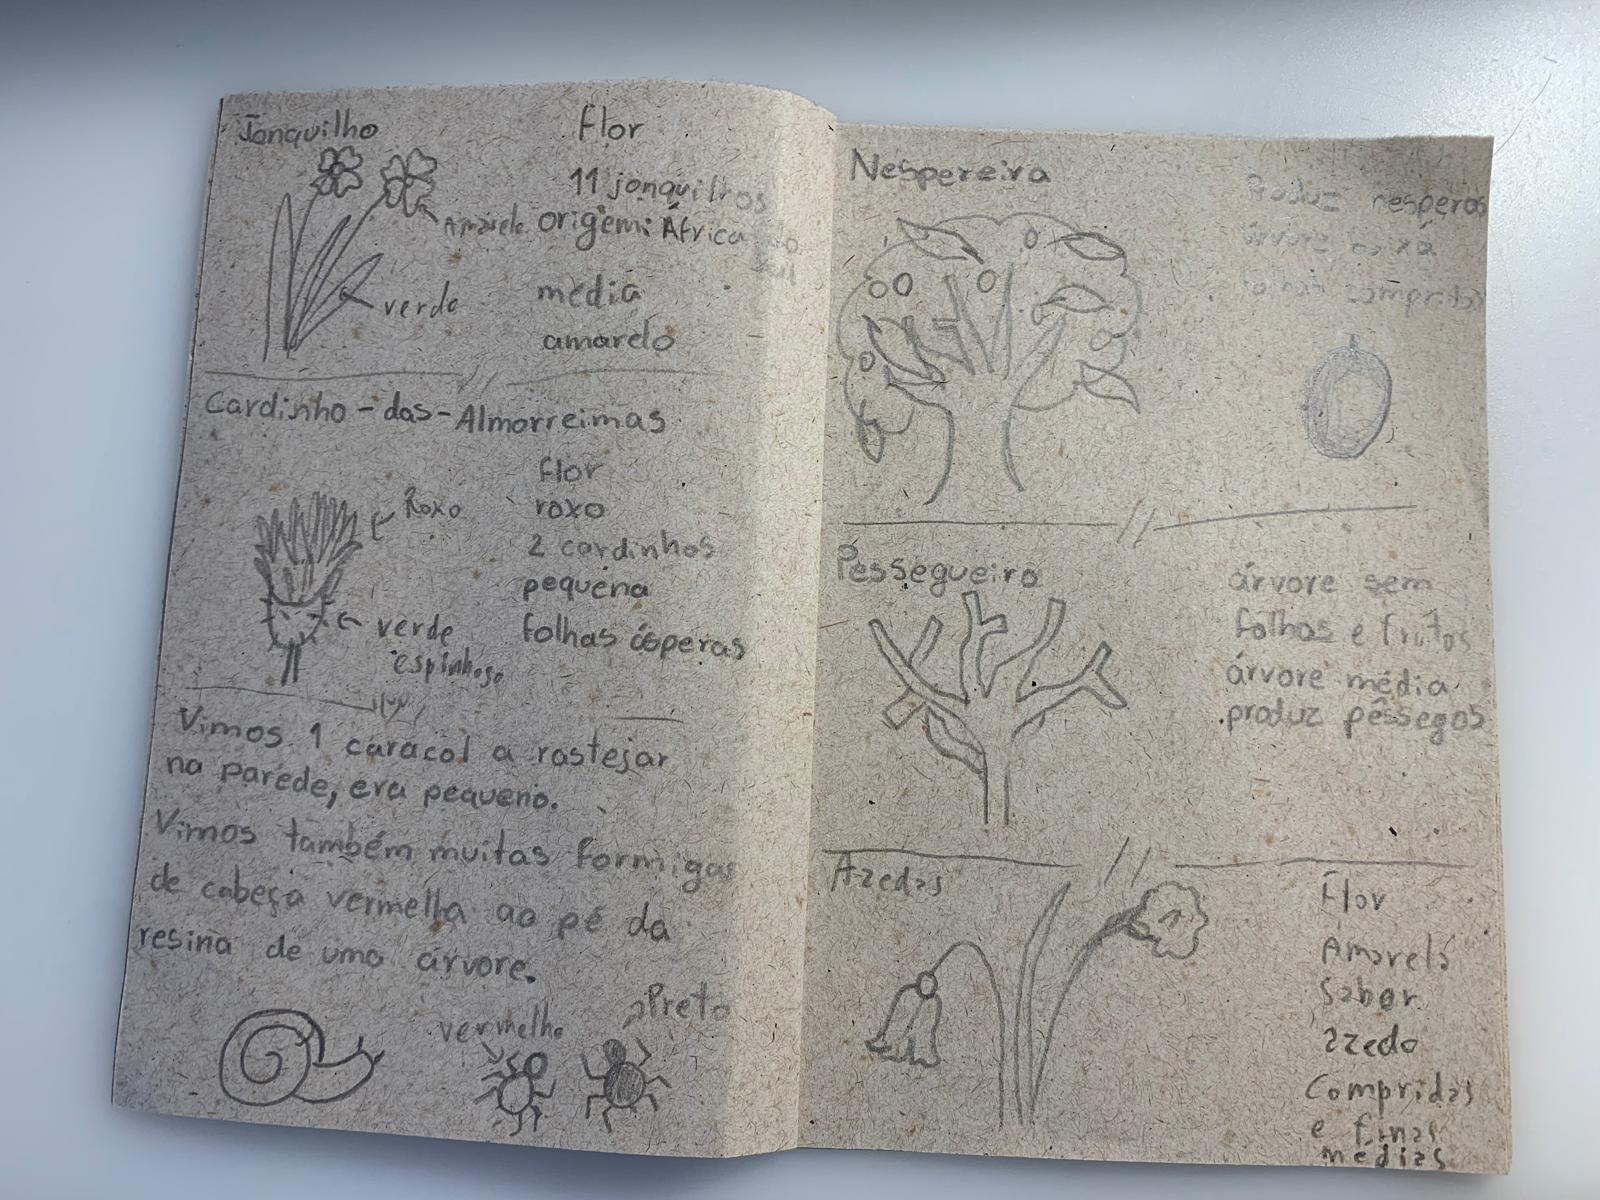 Jonquilho
Flor
11 jonquilhos
Amarelo
origem: África do
Sul
verde
média
amarelo
Cardinho-das-Almorreimas
flor
Roxo
roxo
2 cardinhos
pequena
verde
espinhoso
folhas ásperas
Vimos 1 caracol a rastejar
na parede, era pequeno.
Vimos também muitas formigas
de cabeça vermelha ao pé da
resina de uma árvore.
vermelho
Preto
Nespereira
Produz nesperos
árvore baixa
folhas compridas
Pessegueiro
árvore sem
folhas e frutos
árvore média
produz pêssegos
Azedas
Flor
Amarela
Sabor
azedo
Compridas
e finas
médias